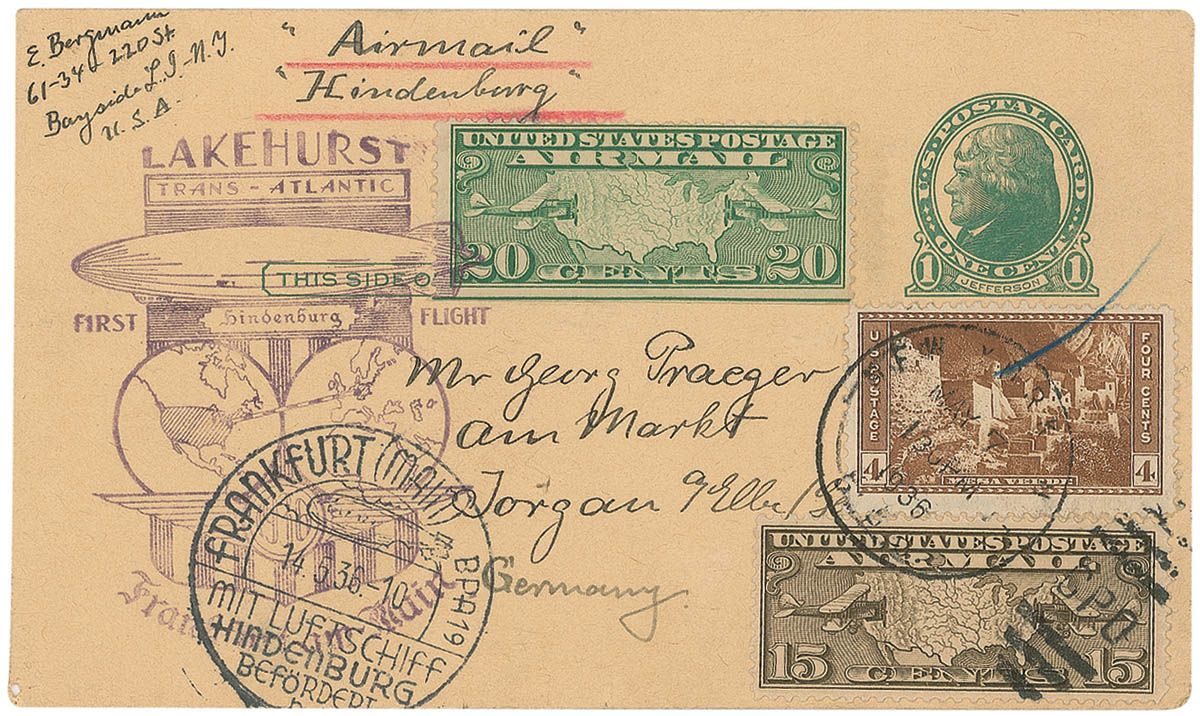 E. Bergmann
61-34-220 St
Bayside L.I.-N.Y.
U.S.A.
"Airmail"
"Hindenburg"
LAKEHURST
TRANS-ATLANTIC
THIS SIDE O
FIRST Hindenburg FLIGHT
UNITED STATES POSTAGE
AIRMAIL
20 CENTS 20
U.S. POSTAL CARD
1 ONE CENT 1
JEFFERSON
U.S. POSTAGE
FOUR CENTS
4 MESA VERDE 4
NEW YORK
MAY
1936
Mr Georg Praeger
am Markt
Torgau Elbe
Germany
FRANKFURT (MAIN)
14.5.36.-10
BPA19
MIT LUFTSCHIFF
HINDENBURG
BEFÖRDERT
Main
UNITED STATES POSTAGE
AIRMAIL
15 CENTS 15
GPO